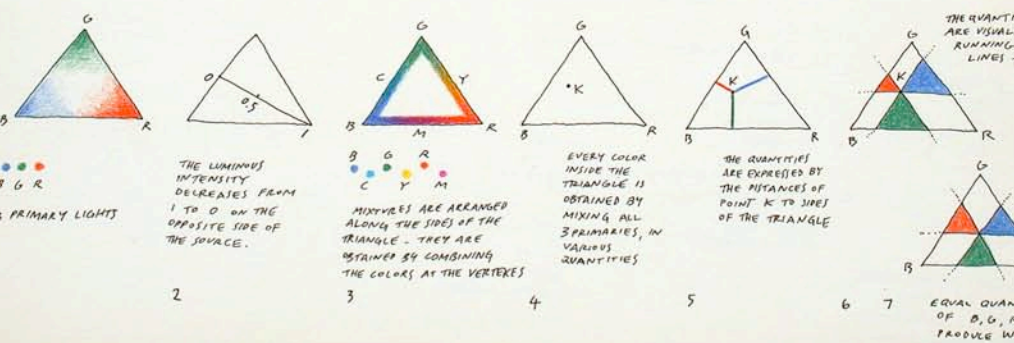 G
B
R
B G R
PRIMARY LIGHTS
0
0.5
1
THE LUMINOUS
INTENSITY
DECREASES FROM
1 TO 0 ON THE
OPPOSITE SIDE OF
THE SOURCE.
2
G
C
Y
B
M
R
B G R
C Y M
MIXTURES ARE ARRANGED
ALONG THE SIDES OF THE
TRIANGLE - THEY ARE
OBTAINED BY COMBINING
THE COLORS AT THE VERTEXES
3
G
K
B
R
EVERY COLOR
INSIDE THE
TRIANGLE IS
OBTAINED BY
MIXING ALL
3 PRIMARIES, IN
VARIOUS
QUANTITIES
4
G
K
B
R
THE QUANTITIES
ARE EXPRESSED BY
THE DISTANCES OF
POINT K TO SIDES
OF THE TRIANGLE
5
THE QUANTI
ARE VISUAL
RUNNING
LINES
G
K
B
R
6
G
B
7
EQUAL QUAN
OF B, G,
PRODUCE W